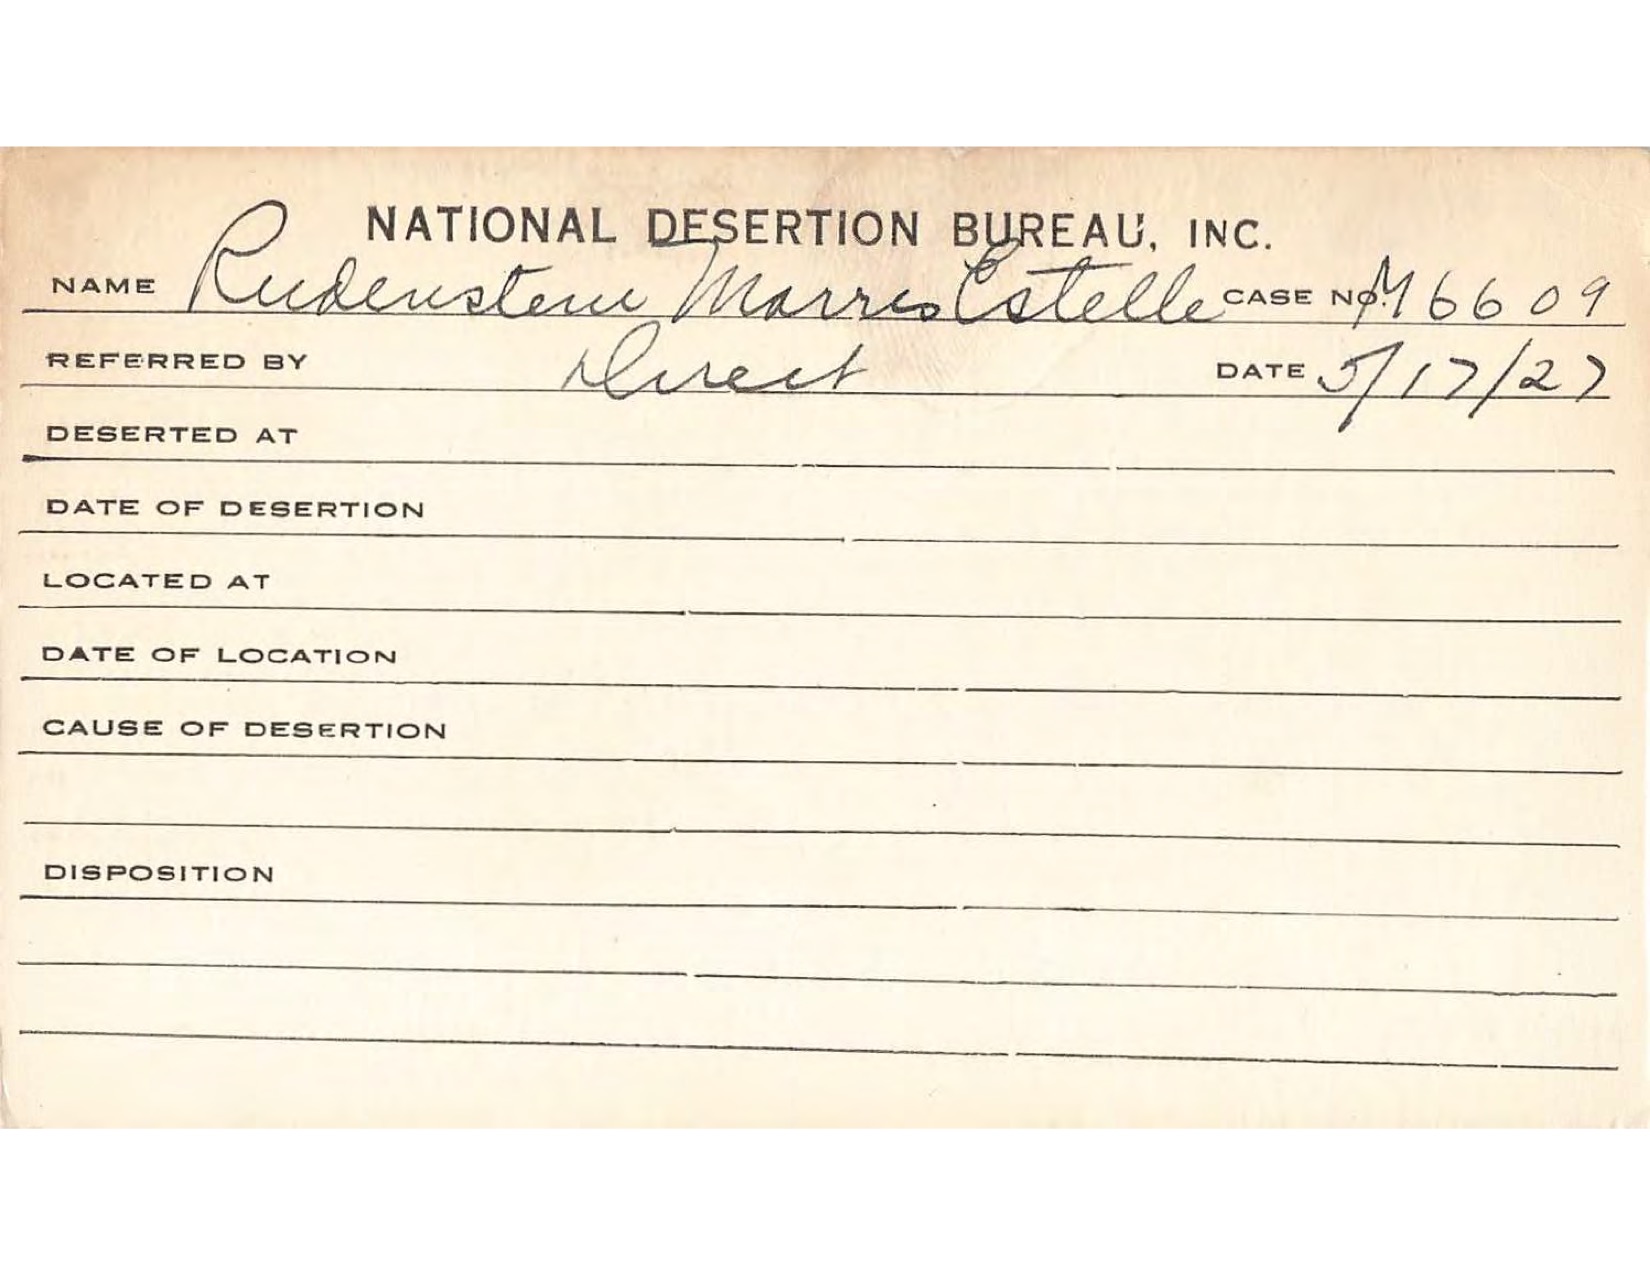 NATIONAL DESERTION BUREAU, INC.
NAME Rudenstein Morris Estelle CASE NO. M6609
REFERRED BY Direct DATE 5/17/27
DESERTED AT
DATE OF DESERTION
LOCATED AT
DATE OF LOCATION
CAUSE OF DESERTION
DISPOSITION